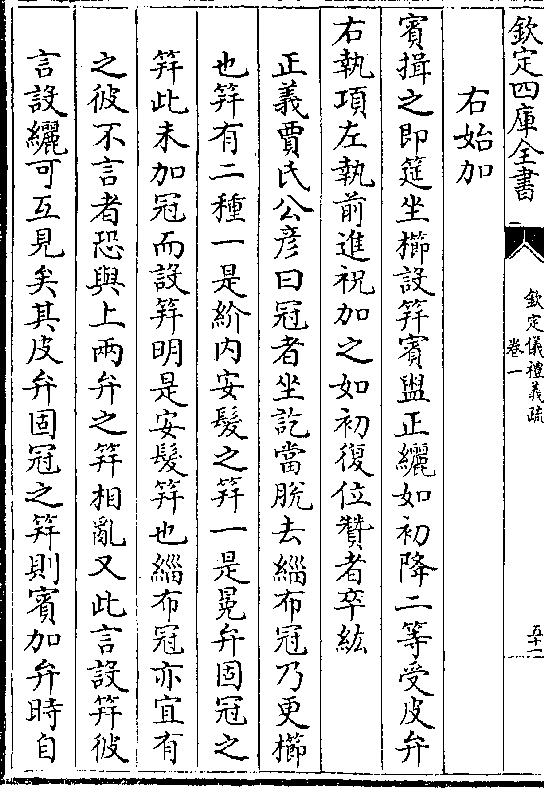 欽定四庫全書
欽定儀禮義疏
卷一
五十一
右始加
賓揖之即筵坐櫛設笄賓盥正纚如初降二等受皮弁
右執項左執前進祝加之如初復位贊者卒紘
正義賈氏公彦曰冠者坐訖當脱去緇布冠乃更櫛
也笄有二種一是紒内安髮之笄一是冕弁固冠之
笄此未加冠而設笄明是安髮笄也緇布冠亦宜有
之彼不言者恐與上兩弁之笄相亂又此言設笄彼
言設纚可互見矣其皮弁固冠之笄則賓加弁時自